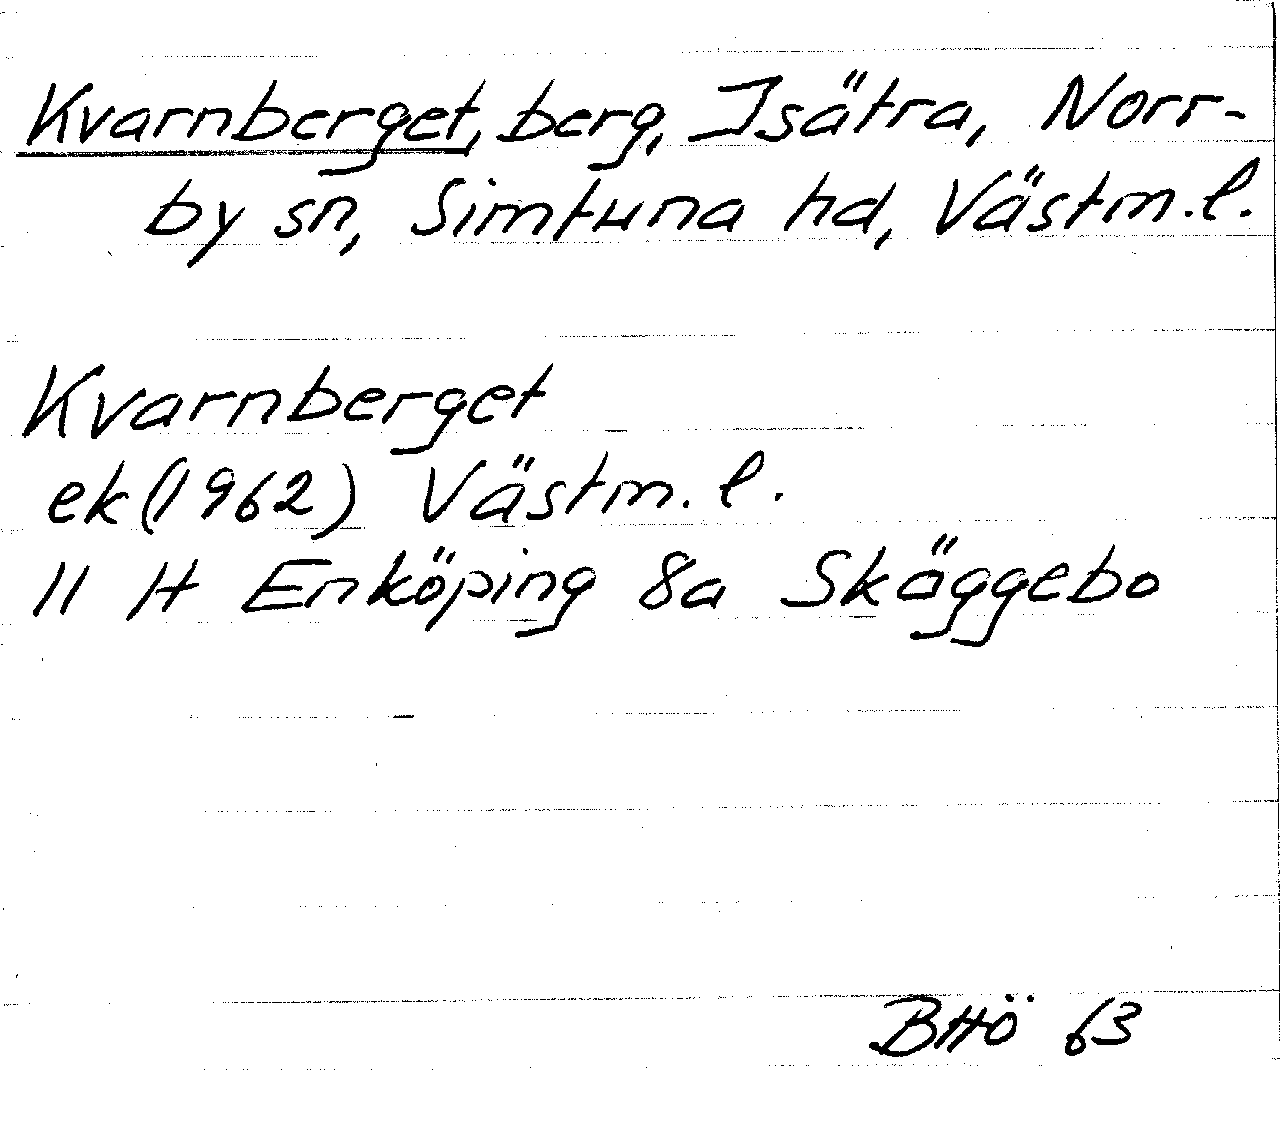 Kvarnberget, berg, Isätra, Norr-
by sn, Simtuna hd, Västm.l.
Kvarnberget
ek (1962) Västm. l.
11 H Enköping 8a Skäggebo
BHÖ 63